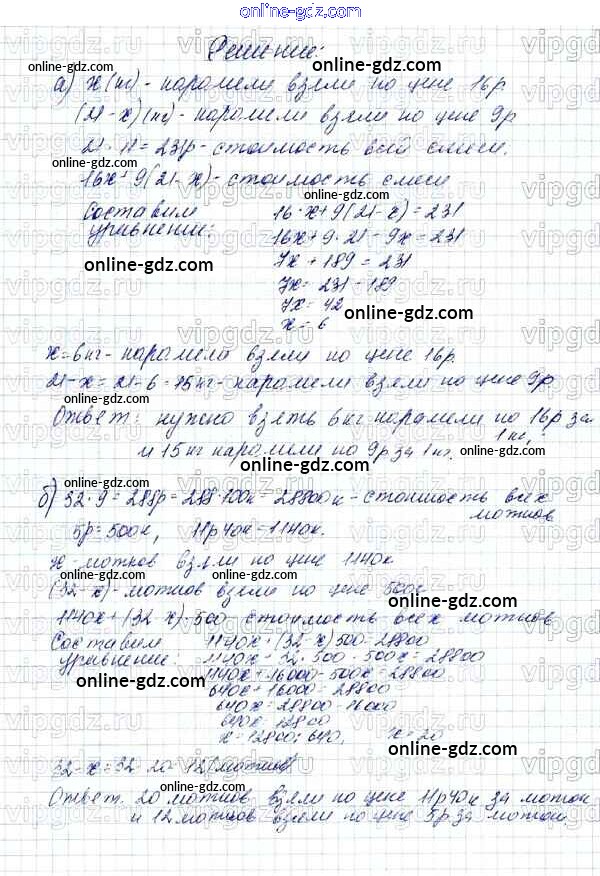 online-gdz.com
Решение:
а) x (кг) - карамели взяли по цене 16р
(21-x)(кг) - карамели взяли по цене 9р
21·11=231р - стоимость всей смеси.
16x+9(21-x) - стоимость смеси
Составим уравнение:
16·x+9(21-x)=231
16x+9·21-9x=231
7x+189=231
7x=231-189
7x=42
x=6
x=6кг - карамели взяли по цене 16р.
21-x=21-6=15кг - карамели взяли по цене 9р
Ответ: нужно взять 6кг карамели по 16р за 1кг,
и 15кг карамели по 9р за 1кг.
б) 32·9=288р=288·100к=28800к - стоимость всех мотков
5р=500к, 11р40к=1140к.
x - мотков взяли по цене 1140к
(32-x) - мотков взяли по цене 500к
1140x+(32-x)·500 стоимость всех мотков
Составим уравнение:
1140x+(32-x)500=28800
1140x+32·500-500x=28800
1140x+16000-500x=28800
640x+16000=28800
640x=28800-16000
640x=12800
x=12800:640, x=20
32-x=32-20=12(мотков)
Ответ. 20 мотков взяли по цене 11р40к за моток
и 12 мотков взяли по цене 5р за моток
online-gdz.com
vipgdz.ru